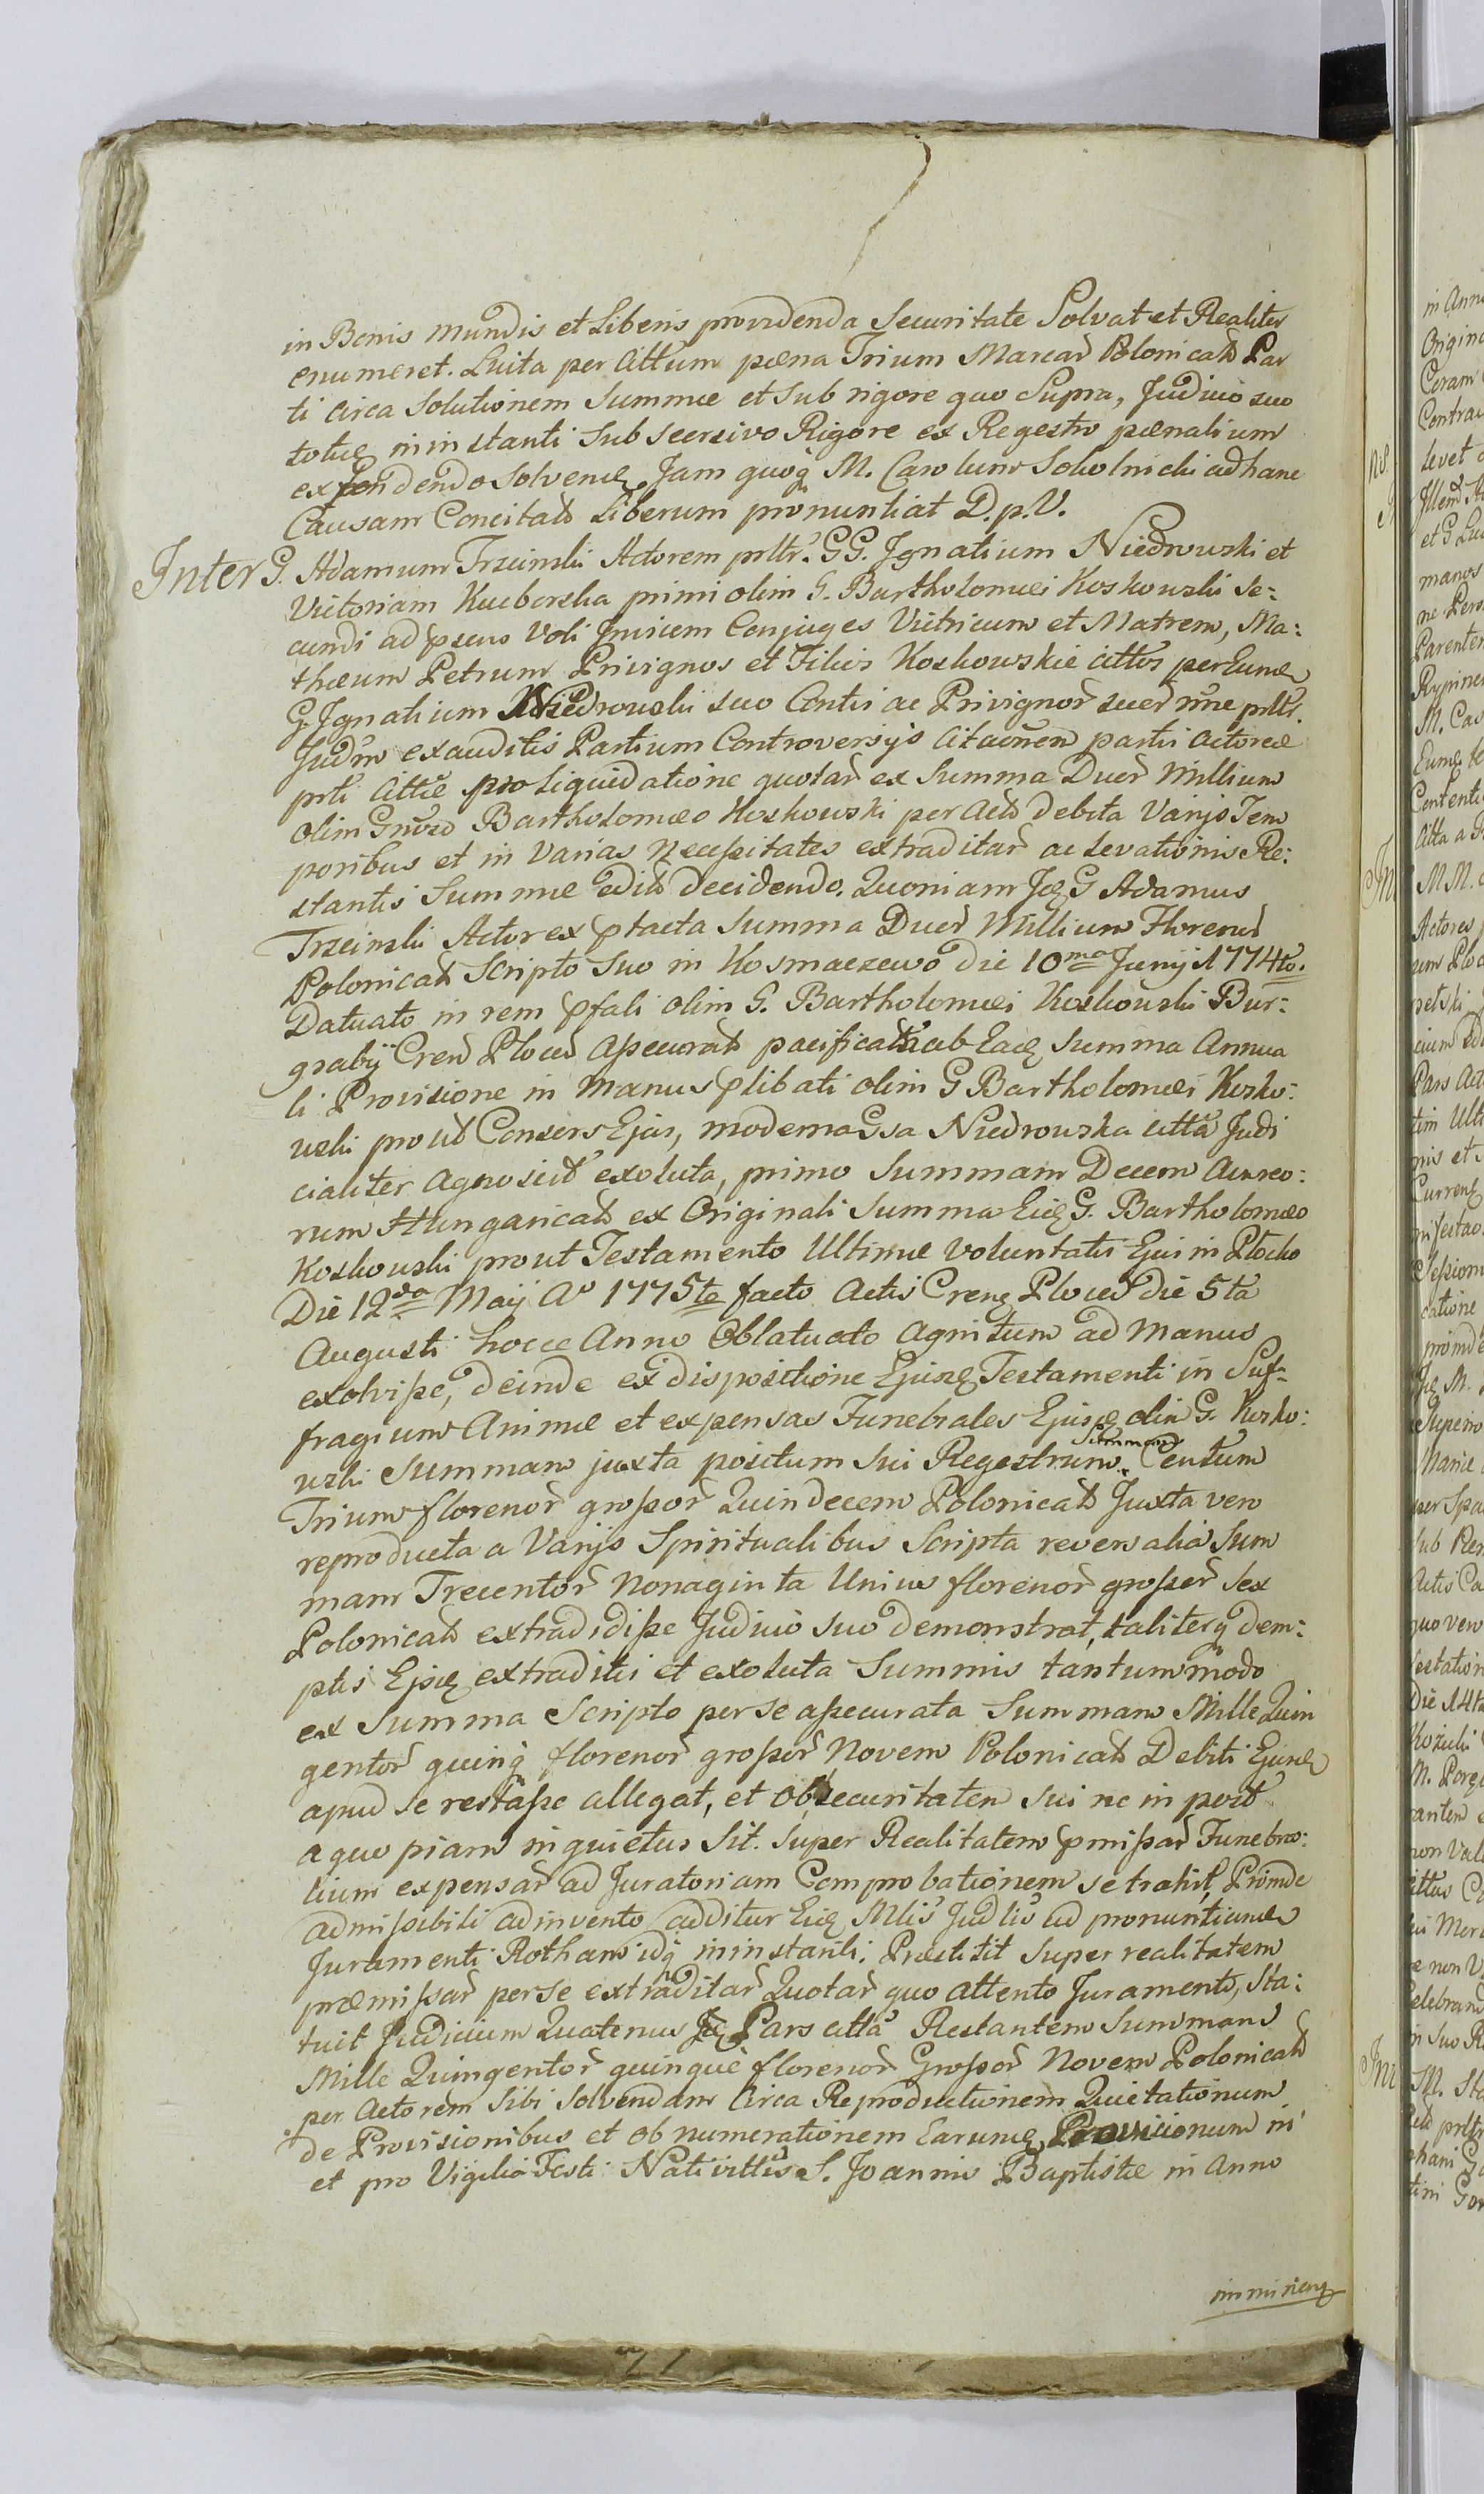 in Bonis mundis et Liberis providenda Securitate Solvat et Realiter
enumeret. Luita per Cittum pæna Trium Marcar Polonicals Par
ti circa Solutionem Summæ et Sub rigore quo Supra, Judicio suo
totuq in instanti Sub Seersivo Rigore ex Regestro pænalium
expendendo Solvenq. Jam quoq M. Carolum Sokolnicki ad hanc
Causam Concitats Liberum pronuntiat D.p.V.
Inter G. Adamum Trzcinski Actorem prltr. GG. Ignatium Niedrowski et
Victoriam Kucborska primi olim G. Bartholomæi Koskowski Se:
cundi ad pseus Voti Invicem Conjuges Vitricum et Matrem, Ma:
thæum Petrum Privignos et Filios Koskowskie Cittos per Eumq
G. Ignatium Niedrowski suo Contis ac Privignor suor nne prltr.
Judm exauditis Partium Controversijs Citaonem partis actoreæ
prti Cittæ pro Liquidatione quotar ex Summa Duor Millium
olim Gnoso Bartholomæo Koskowski per Acts debita Varijs Tem
poribus et in Varias Necessitates extraditar ac Levationis Re:
stantis Summæ edits decidendo. Quoniam Jq G Adamus
Trzcinski Actor ex ptacta Summa Duor Millium Florenor
Polonicals Scripto Suo in Kosmaczewo die 10ma Junij 1774to.
Datuato in rem pfati olim G. Bartholomæi Koskowski Bur:
grabij Cren Plocen Assecurats pacificats ab Eaq Summa Annua
li Provisione in manus plibati olim G Bartholomæi Kosko:
wski prout Consors Ejus, moderna Gsa Niedrowska citta Judi
cialiter Agnoscit exoluta, primo Summam Decem Aureo:
rum Hungaricals ex Originali Summa Eiq G. Bartholomæo
Koskowski prout Testamento Ultimæ Voluntatis Ejus in Plocko
Die 12da Maij Ao 1775to facto Actis Crenq Plocen die 5ta
Augusti hocce Anno Oblatuato Agnitum ad manus
exolvisse, deinde ex dispositione Ejusq Testamenti in Suf-
fragium Animæ et expensas Funebrales Ejusq olim G. Kosko:
wski Summam juxta positum Sui Regestrum Summam Centum
Trium florenor grossor Quindecem Polonicals Juxta vero
reproducta a Varijs Spiritualibus Scripta reversalia Sum
mam Trecentor Nonaginta Unius florenor grossor Sex
Polonicals extradidisse Judicio Suo demonstrat, taliterq dem:
ptis Ejsq extraditis et exoluta Summis tantummodo
ex Summa Scripto per Se assecurata Summam Mille Quin
gentor quinq florenor grossor Novem Polonicals Debiti Ejusq
apud se restasse allegat, et ob securitatem Sui ne in post
a quo piam inquietus Sit. Super Realitatem pmissar Funebra:
lium expensar ad Juratoriam Comprobationem se trahit, Proinde
admissibili adinvento additur Eiq Mlis Judlis ad pronuntianq
Juramenti Rotham idq in instanti. Præstitit Super realitatem
præmissar per se extraditar Quotar quo attento Juramento, Sta:
tuit Judicium Quatenus Jq Pars citta Restantem Summam
Mille Quingentor quinque florenor Grossor Novem Polonicals
per Actorem Sibi Solvendam Circa Reproductionem Quietationum
de Provisionibus et ob numerationem Earumq Provisionum in
et pro Vigilia Festi Nativittis S. Joannis Baptistæ in Anno
imminenq